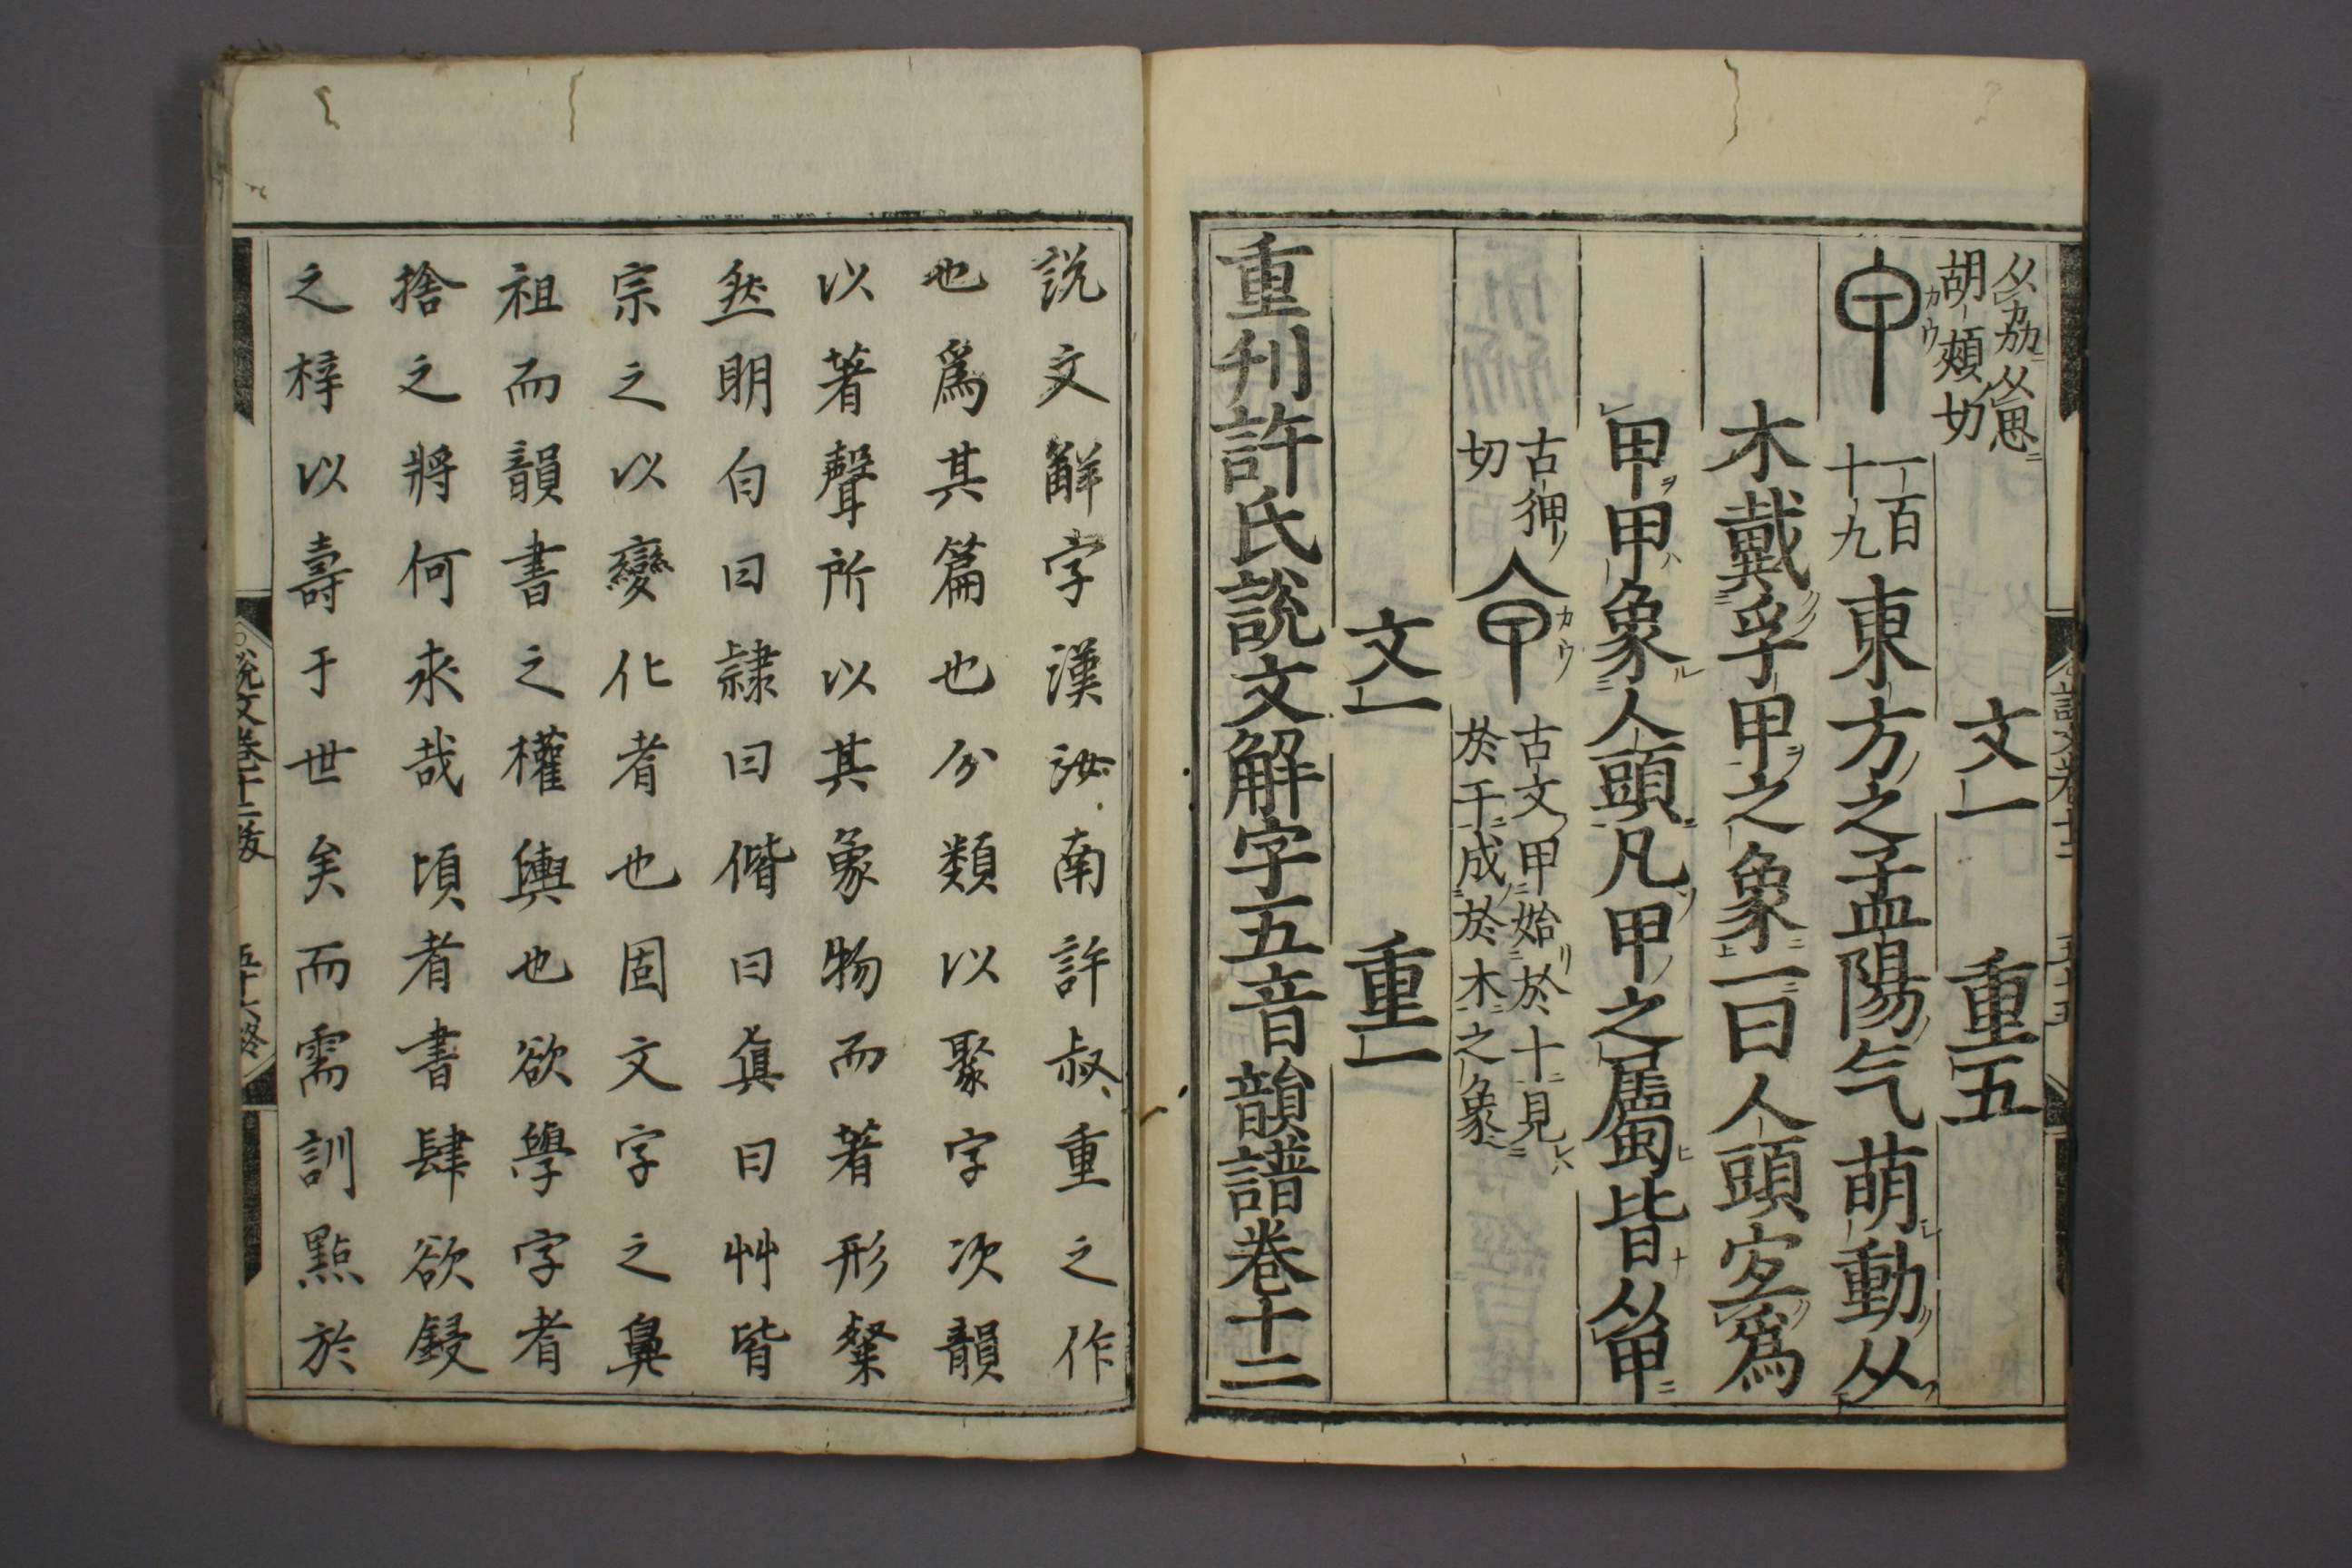 从劦从思
胡頰切
カウ
文一　重五
一百
十九
東方之孟陽气萌動从
木戴孚甲之象一曰人頭宐爲
甲甲象人頭凡甲之屬皆从甲
古狎
切
カウ
古文甲始於十見
於千成於木之象
文一　重一
重刊許氏說文解字五音韻譜卷十二
說文解字漢汝南許叔重之作
也爲其篇也分類以聚字次韻
以著聲所以其象物而著形粲
然明白曰隷曰偕曰眞曰艸皆
宗之以變化者也固文字之鼻
祖而韻書之權輿也欲學字者
捨之將何求哉頃者書肆欲鋟
之梓以壽于世矣而需訓點於
說文卷十二跋　五十六終